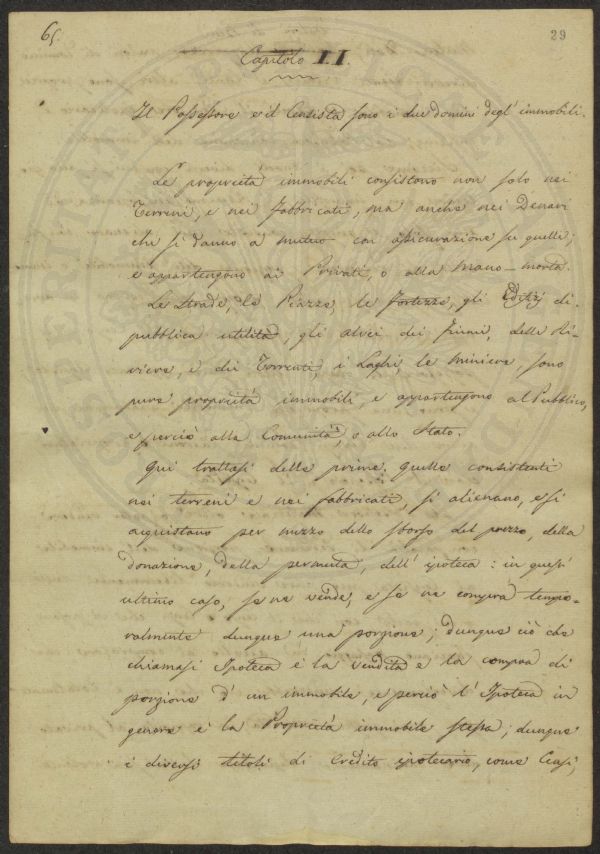 65.
29
Capitolo II.
Il Possessore e il Censista sono i due domini degl' immobili.
Le proprietà immobili consistono non solo nei
Terreni, e nei fabbricati, ma anche nei Denari
che si danno a mutuo con assicurazione su quelle;
e appartengono ai Privati, o alla Mano-morta.
Le Strade, le Piazze, le Fortezze, gli Edifizj di
pubblica utilità, gli alvei dei Fiumi, delle Ri-
viere, e dei Torrenti, i Laghi, le Miniere, sono
pure proprietà immobili, e appartengono al Pubblico,
e perciò alla Comunità, o allo Stato.
Qui trattasi delle prime. Quelle consistenti
nei terreni e nei fabbricati, si alienano, e si
acquistano per mezzo dello sborso del prezzo, della
donazione, della permuta, dell' ipoteca: in quest'
ultimo caso, se ne vende, e se ne compra tempo-
ralmente dunque una porzione; dunque ciò che
chiamasi Ipoteca è la vendita e la compra di
porzione d' un immobile, e perciò l' Ipoteca in
genere è la Proprietà immobile stessa; dunque
i diversi titoli di Credito ipotecario, come Censi,